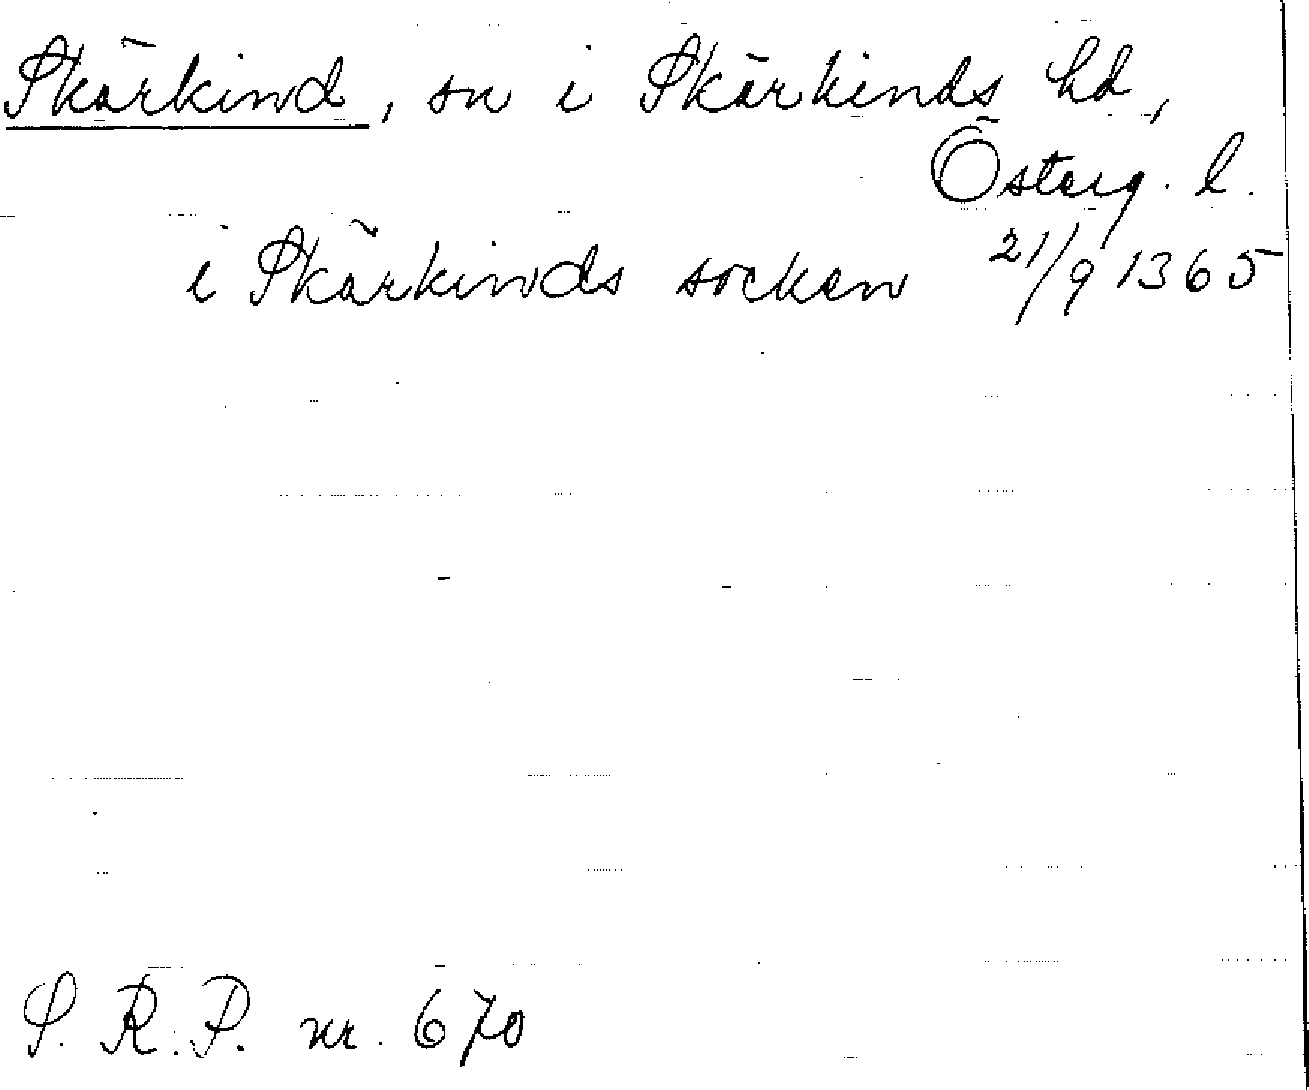 Skärkind, sn i Skärkinds hd,
Österg. l.
i Skärkinds sockan 21/9 1365
S. R. P. nr. 670